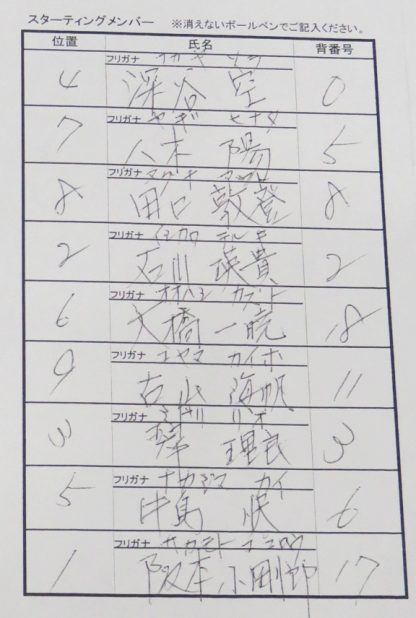 スターティングメンバー ※消えないボールペンでご記入ください。
位置 氏名 背番号
フリガナ フカヤ ソラ
4 深谷 空 0
フリガナ ヤギ ヒナタ
7 八木 陽 5
フリガナ
8 田口 敦登 8
フリガナ イシカワ テルキ
2 石川 瑛貴 2
フリガナ オオハシ カズト
6 大橋 一暁 18
フリガナ コヤマ カイホ
9 古山 海帆 11
フリガナ ミギリ リオ
3 理良 3
フリガナ ナカジマ カイ
5 中島 6
フリガナ サカモト コジロウ
1 阪本 小剛郎 17